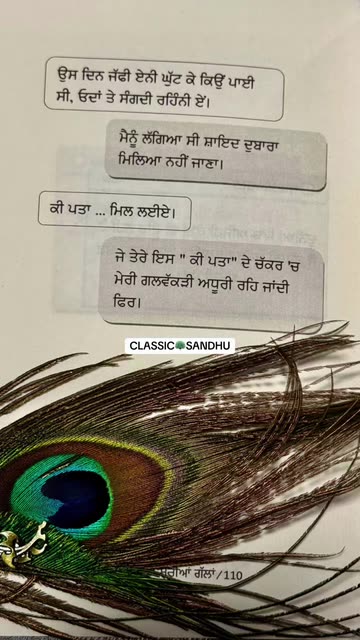 ਉਸ ਦਿਨ ਜੱਫੀ ਏਨੀ ਘੁੱਟ ਕੇ ਕਿਉਂ ਪਾਈ
ਸੀ, ਓਦਾਂ ਤੇ ਸੰਗਦੀ ਰਹਿੰਨੀ ਏਂ।
ਮੈਨੂੰ ਲੱਗਿਆ ਸੀ ਸ਼ਾਇਦ ਦੁਬਾਰਾ
ਮਿਲਿਆ ਨਹੀਂ ਜਾਣਾ।
ਕੀ ਪਤਾ ... ਮਿਲ ਲਈਏ।
ਜੇ ਤੇਰੇ ਇਸ " ਕੀ ਪਤਾ" ਦੇ ਚੱਕਰ 'ਚ
ਮੇਰੀ ਗਲਵੱਕੜੀ ਅਧੂਰੀ ਰਹਿ ਜਾਂਦੀ
ਫਿਰ।
CLASSIC🌳SANDHU
ਗੱਲਾਂ/110